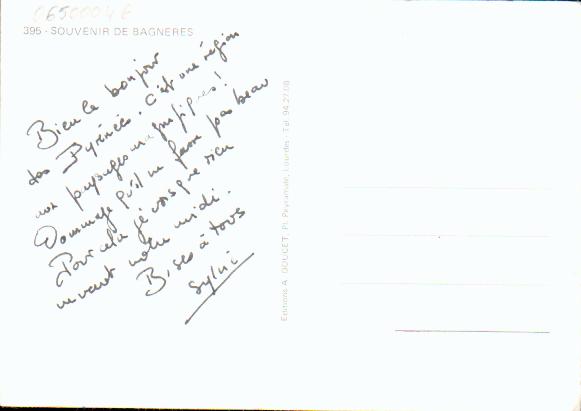 06500046
395 - SOUVENIR DE BAGNERES
Bien le bonjour
des Pyrénées. C'est une région
aux paysages magnifiques!
Dommage qu'il ne fasse pas beau
Pour cela je vois que rien
ne vaut notre midi.
Bises à tous
Sylvie
Editions A. DOUCET - Pl. Peyramale, Lourdes - Tél. 94.27.08